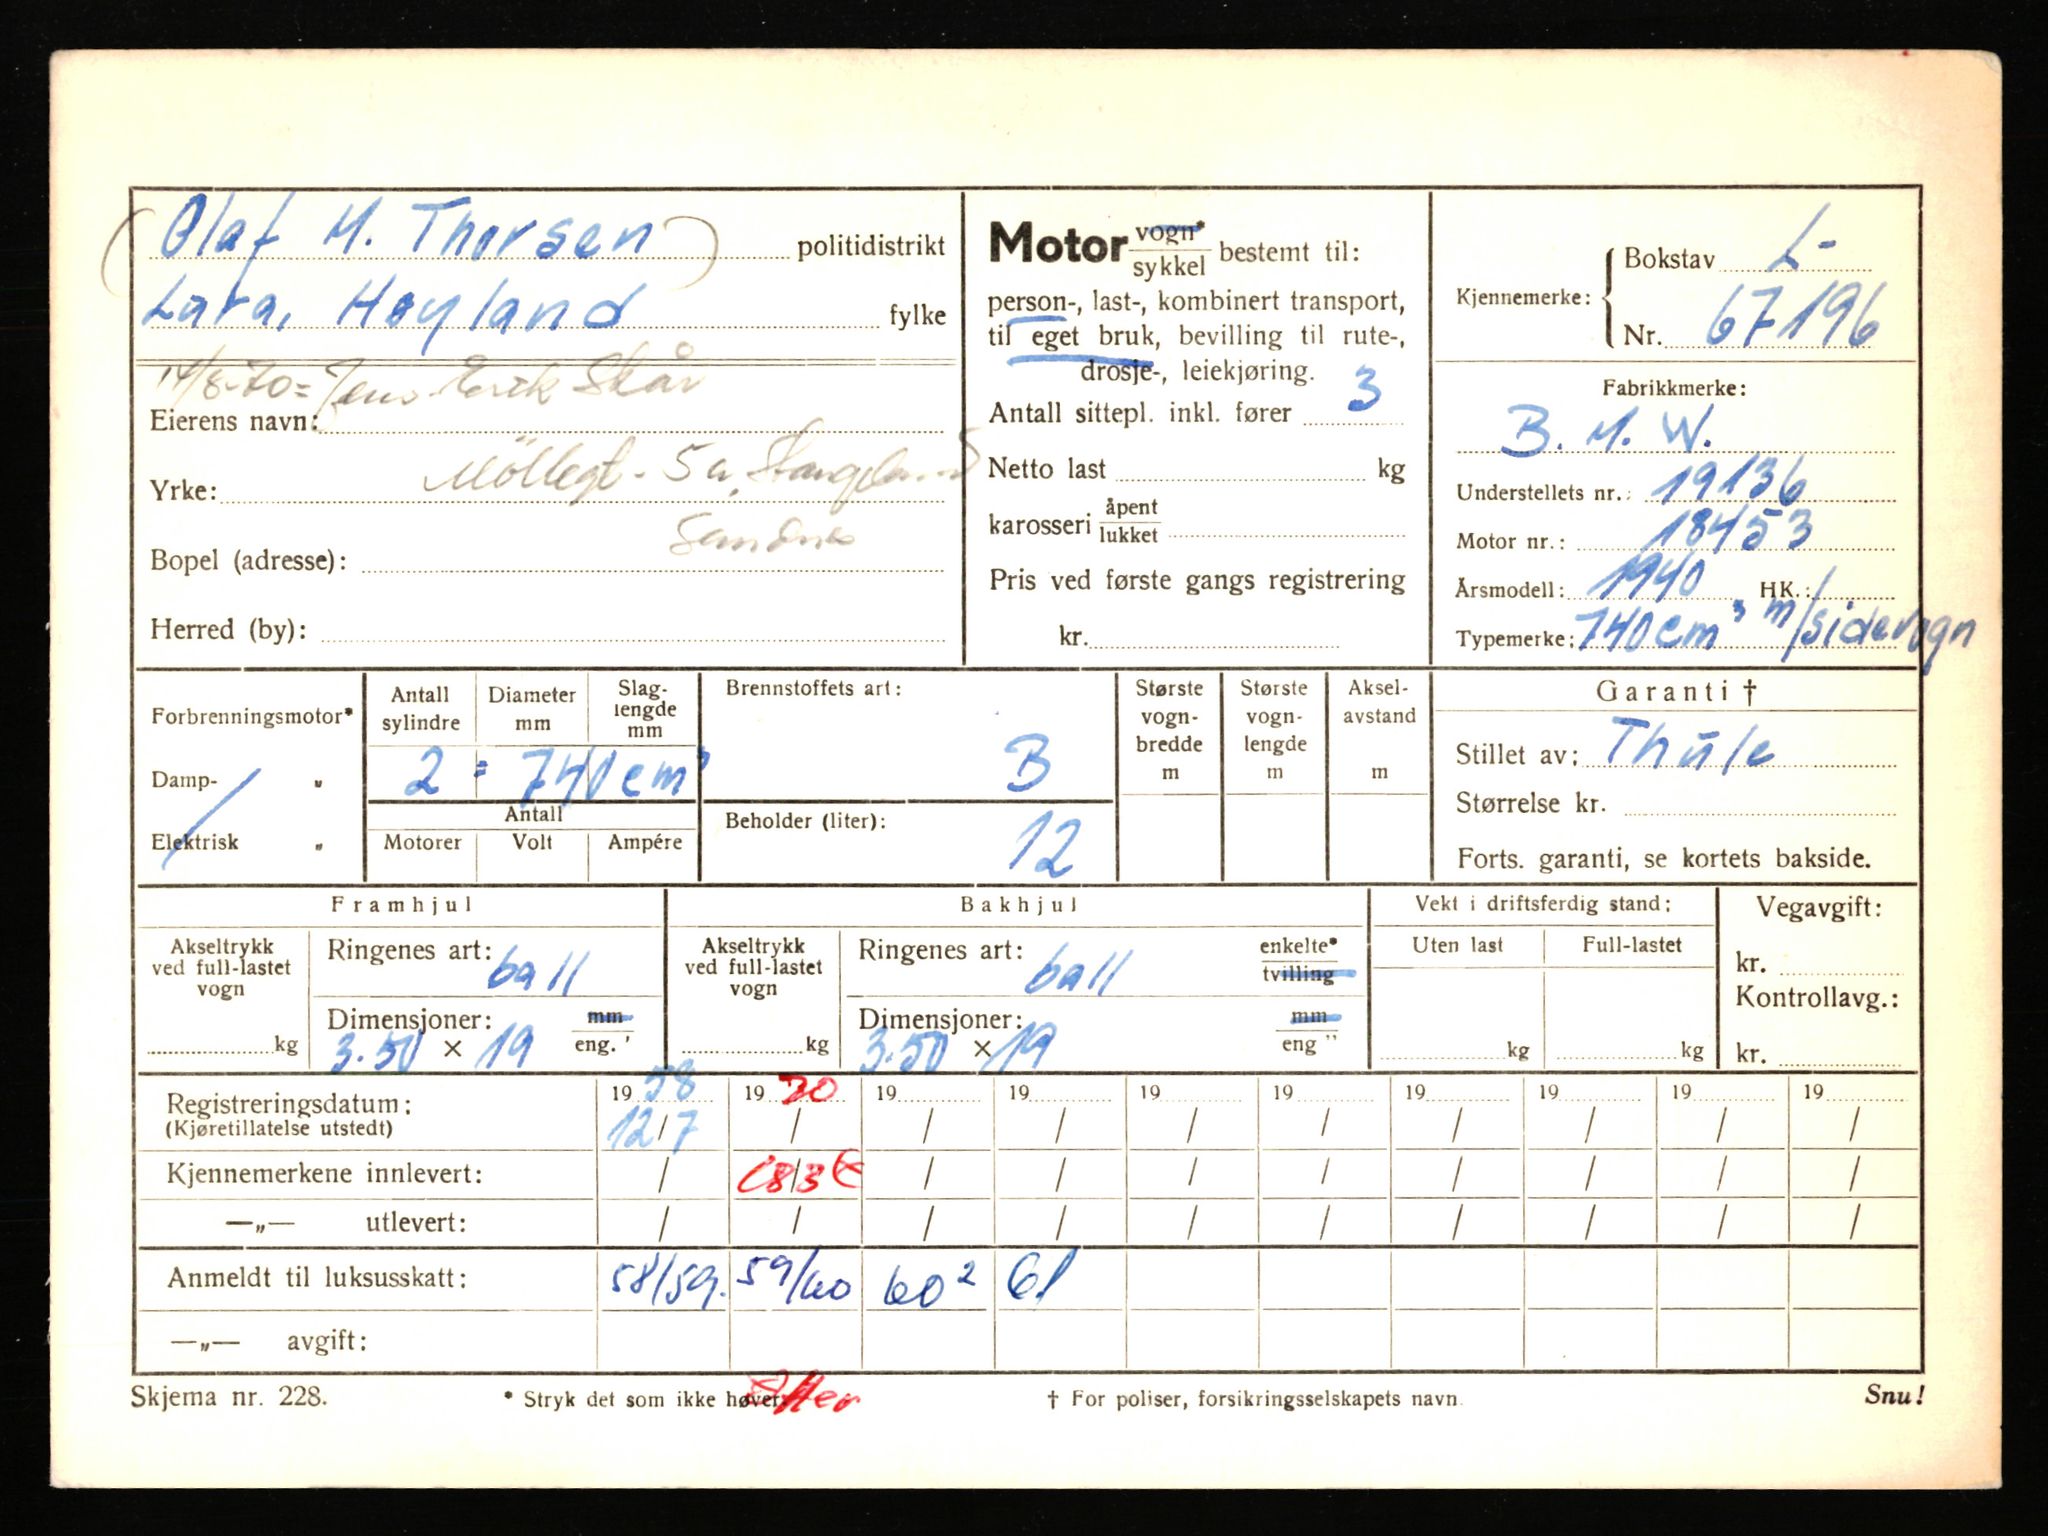 Olaf M. Thorsen politidistrikt
Lura, Høyland fylke
14/8-70 = Jens Erik Skår
Eierens navn:
Yrke: Möllegt. 5a, Stangeland
Sandnes
Bopel (adresse):
Herred (by):
Motor vogn* / sykkel bestemt til:
person-, last-, kombinert transport,
til eget bruk, bevilling til rute-,
drosje-, leiekjøring.
Antall sittepl. inkl. fører 3
Netto last kg
karosseri åpent / lukket
Pris ved første gangs registrering
kr.
Kjennemerke: Bokstav L-
Nr. 67196
Fabrikkmerke:
B. M. W.
Understellets nr.: 19136
Motor nr.: 18453
Årsmodell: 1940 HK.:
Typemerke: 740 cm³ m/sidevogn
Forbrenningsmotor*
Damp- „
Elektrisk „
Antall sylindre
Diameter mm
Slag-lengde mm
2 = 740 cm³
Antall
Motorer Volt Ampére
Brennstoffets art:
B
Beholder (liter):
12
Største vogn-bredde m
Største vogn-lengde m
Aksel-avstand m
Garanti †
Stillet av: Thule
Størrelse kr.
Forts. garanti, se kortets bakside.
Framhjul
Akseltrykk ved full-lastet vogn
kg
Ringenes art: ball
Dimensjoner: mm / eng. '
3.50 × 19
Bakhjul
Akseltrykk ved full-lastet vogn
kg
Ringenes art: ball enkelte* / tvilling
Dimensjoner: mm / eng "
3.50 × 19
Vekt i driftsferdig stand:
Uten last Full-lastet
kg kg
Vegavgift:
kr.
Kontrollavg.:
kr.
Registreringsdatum: 19 58 19 70 19 19 19 19 19 19 19 19
(Kjøretillatelse utstedt) 12/7 / / / / / / / / /
Kjennemerkene innlevert: / 18/3 / / / / / / / /
—„— utlevert: / / / / / / / / / /
Anmeldt til luksusskatt: 58/59. 59/60 60² 61
—„— avgift:
Skjema nr. 228. * Stryk det som ikke høver. † For poliser, forsikringsselskapets navn. Snu!